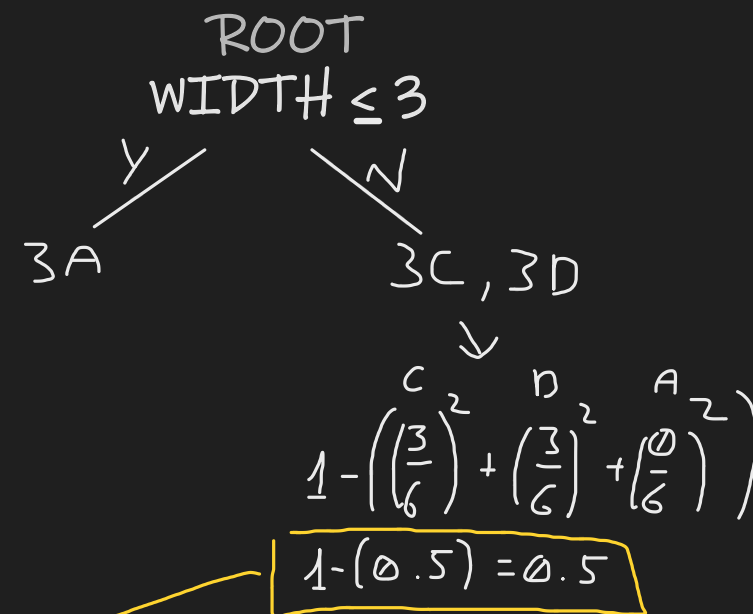 ROOT
WIDTH ≤ 3
Y N
3A 3C, 3D
C D A
1-((3/6)² + (3/6)² + (0/6)²)
1-(0.5) = 0.5